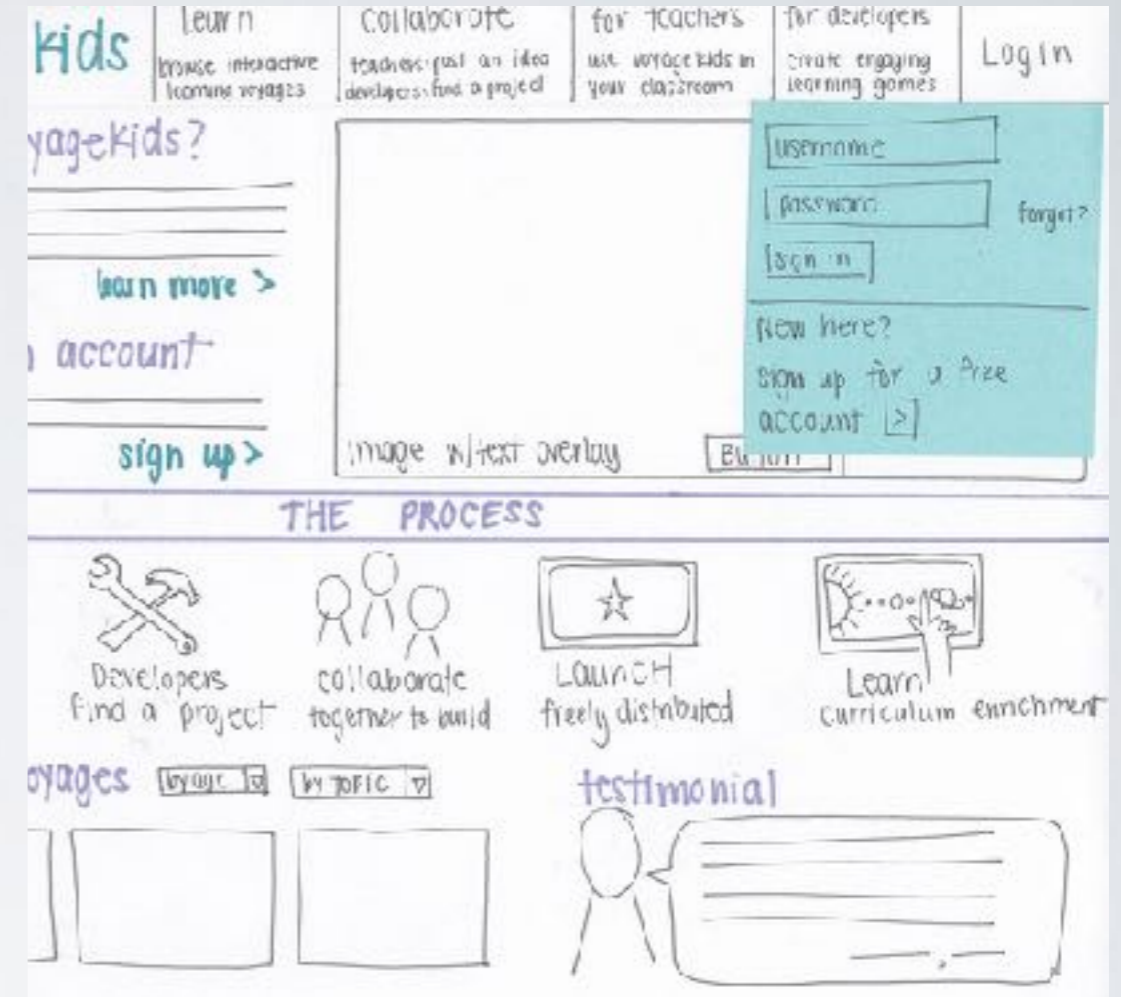 kids
Learn
browse interactive
learning voyages
collaborate
teachers: post an idea
developers: find a project
for teachers
use voyage kids in
your classroom
for developers
create engaging
learning games
Log In
yagekids?
learn more >
account
sign up >
image w/text overlay
Button
username
password
forgot?
sign in
New here?
sign up for a free
account >
THE PROCESS
Developers
find a project
collaborate
together to build
LAUNCH
freely distributed
Learn
curriculum enrichment
oyages
by age
by TOPIC
testimonial